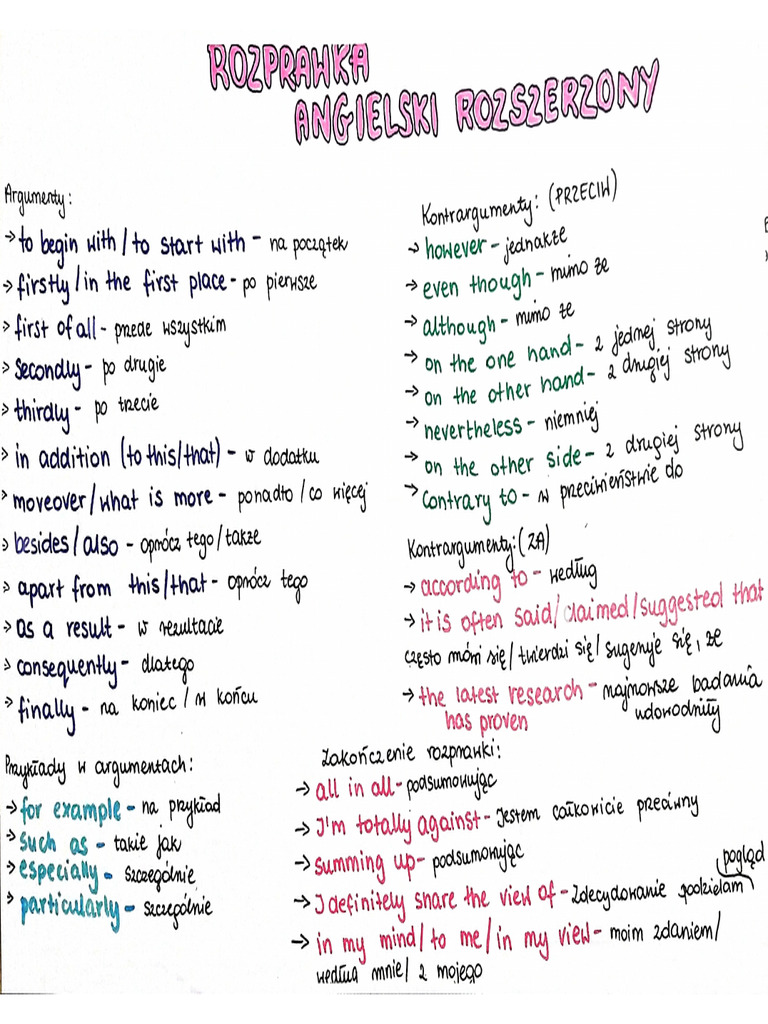 ROZPRAWKA
ANGIELSKI ROZSZERZONY
Argumenty:
→ to begin with/to start with - na początek
→ firstly/in the first place - po pierwsze
→ first of all - przede wszystkim
→ secondly - po drugie
→ thirdly - po trzecie
→ in addition (to this/that) - w dodatku
→ moveover/what is more - ponadto/co więcej
→ besides/also - oprócz tego/także
→ apart from this/that - oprócz tego
→ as a result - w rezultacie
→ consequently - dlatego
→ finally - na koniec/w końcu
Kontrargumenty: (PRZECIW)
→ however - jednakże
→ even though - mimo że
→ although - mimo że
→ on the one hand - z jednej strony
→ on the other hand - z drugiej strony
→ nevertheless - niemniej
→ on the other side - z drugiej strony
→ contrary to - w przeciwieństwie do
Kontrargumenty: (ZA)
→ according to - według
→ it is often said/claimed/suggested that
często mówi się/twierdzi się/sugeruje się, że
→ the latest research - najnowsze badania
has proven udowodniły
Przykłady w argumentach:
→ for example - na przykład
→ such as - takie jak
→ especially - szczególnie
→ particularly - szczególnie
Zakończenie rozprawki:
→ all in all - podsumowując
→ I'm totally against - Jestem całkowicie przeciwny
→ summing up - podsumowując
pogląd
→ I definitely share the view of - Zdecydowanie podzielam
→ in my mind/to me/in my view - moim zdaniem/
według mnie/z mojego